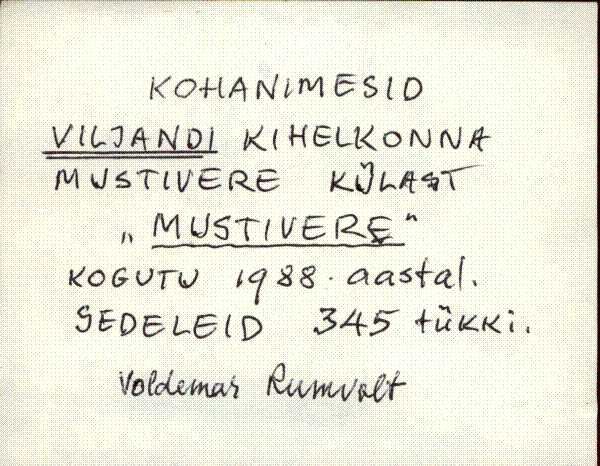 KOHANIMESID
VILJANDI KIHELKONNA
MUSTIVERE KÜLAST
„MUSTIVERE"
KOGUTU 1988. aastal.
SEDELEID 345 tükki.
Voldemar Rumvolt